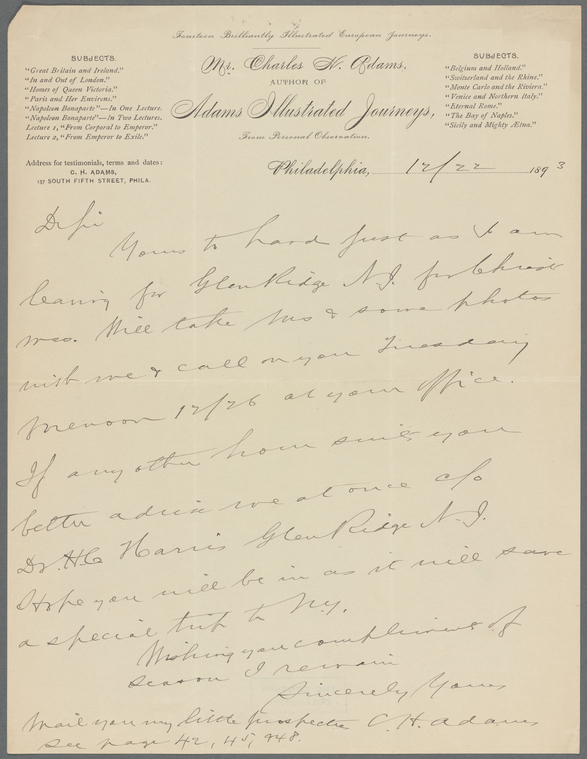 Fourteen Brilliantly Illustrated European Journeys.
Mr. Charles H. Adams,
AUTHOR OF
Adams Illustrated Journeys,
From Personal Observation.
SUBJECTS.
"Great Britain and Ireland."
"In and Out of London."
"Homes of Queen Victoria."
"Paris and Her Environs."
"Napoleon Bonaparte"—In One Lecture.
"Napoleon Bonaparte"—In Two Lectures.
Lecture 1, "From Corporal to Emperor."
Lecture 2, "From Emperor to Exile."
SUBJECTS.
"Belgium and Holland."
"Switzerland and the Rhine."
"Monte Carlo and the Riviera."
"Venice and Northern Italy."
"Eternal Rome."
"The Bay of Naples."
"Sicily and Mighty Ætna."
Address for testimonials, terms and dates:
C. H. ADAMS,
137 SOUTH FIFTH STREET, PHILA.
Philadelphia, 12/22 1893
Dr Sir
Yours to hand just as I am
leaving for Glen Ridge N.J. for Christ
mas. Will take Mss & some photos
with me & call on you Tuesday
forenoon 12/26 at your office.
If any other hour suits you
better advise me at once c/o
Dr. H.C. Harris Glen Ridge N.J.
Hope you will be in as it will save
a special trip to N.Y.
Wishing you compliments of
season I remain
Sincerely Yours
C. H. Adams
Mail you my little prospectus
See page 42, 45, & 48.